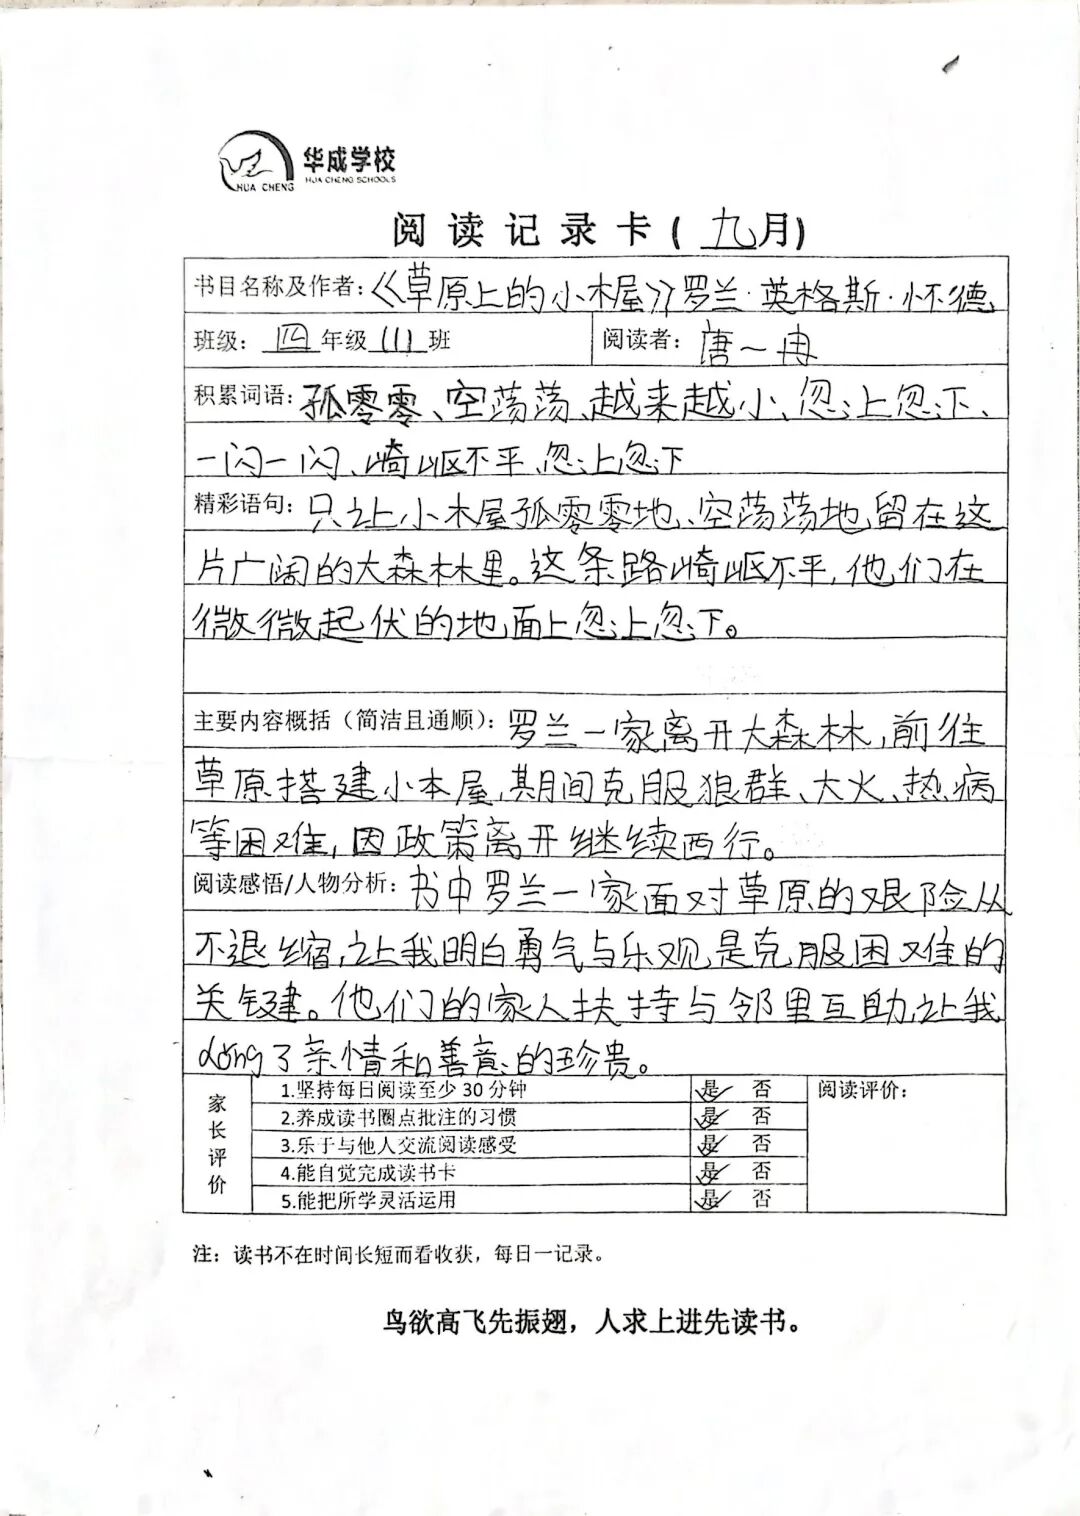 华成学校
HUA CHENG SCHOOLS
HUA CHENG
阅读记录卡(九月)
书目名称及作者:《草原上的小木屋》罗兰·英格斯·怀德
班级:四年级(1)班 阅读者:唐一冉
积累词语:孤零零、空荡荡、越来越小、忽上忽下、
一闪一闪、崎岖不平、忽上忽下
精彩语句:只让小木屋孤零零地、空荡荡地留在这
片广阔的大森林里。这条路崎岖不平,他们在
微微起伏的地面上忽上忽下。
主要内容概括(简洁且通顺):罗兰一家离开大森林,前往
草原搭建小本屋,期间克服狼群、大火、热病
等困难,因政策离开继续西行。
阅读感悟/人物分析:书中罗兰一家面对草原的艰险从
不退缩,让我明白勇气与乐观是克服困难的
关键。他们的家人扶持与邻里互助,让我
dǒng了亲情和善意的珍贵。
家长评价
1.坚持每日阅读至少30分钟 是✓ 否 阅读评价:
2.养成读书圈点批注的习惯 是✓ 否
3.乐于与他人交流阅读感受 是✓ 否
4.能自觉完成读书卡 是✓ 否
5.能把所学灵活运用 是✓ 否
注:读书不在时间长短而看收获,每日一记录。
鸟欲高飞先振翅,人求上进先读书。